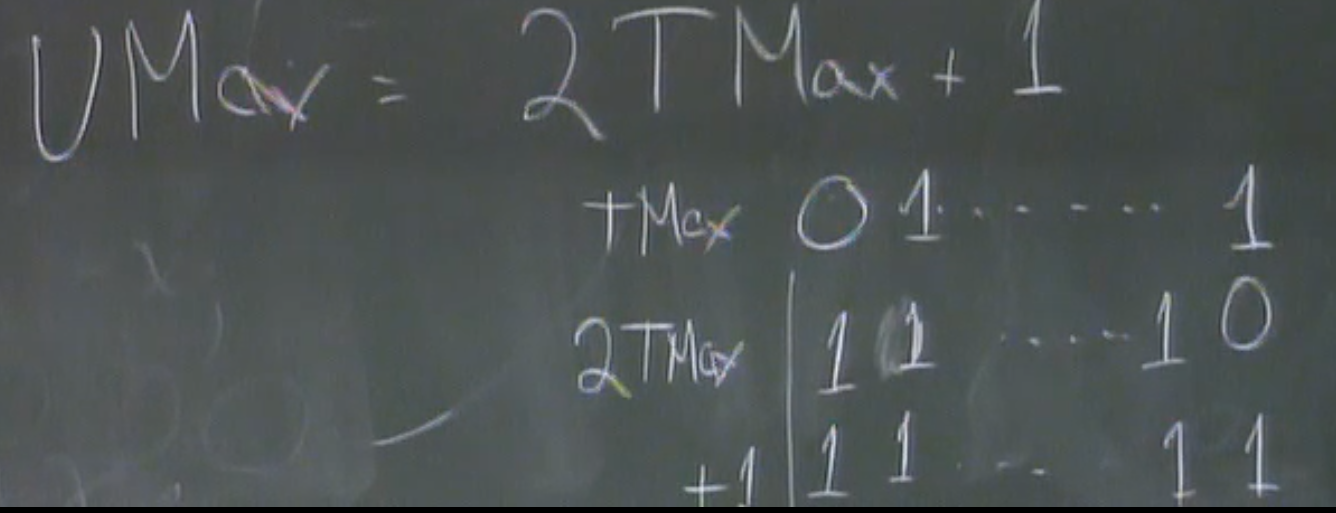 UMax = 2TMax + 1
TMax 01.......1
2TMax | 11.....10
+1 | 11....11